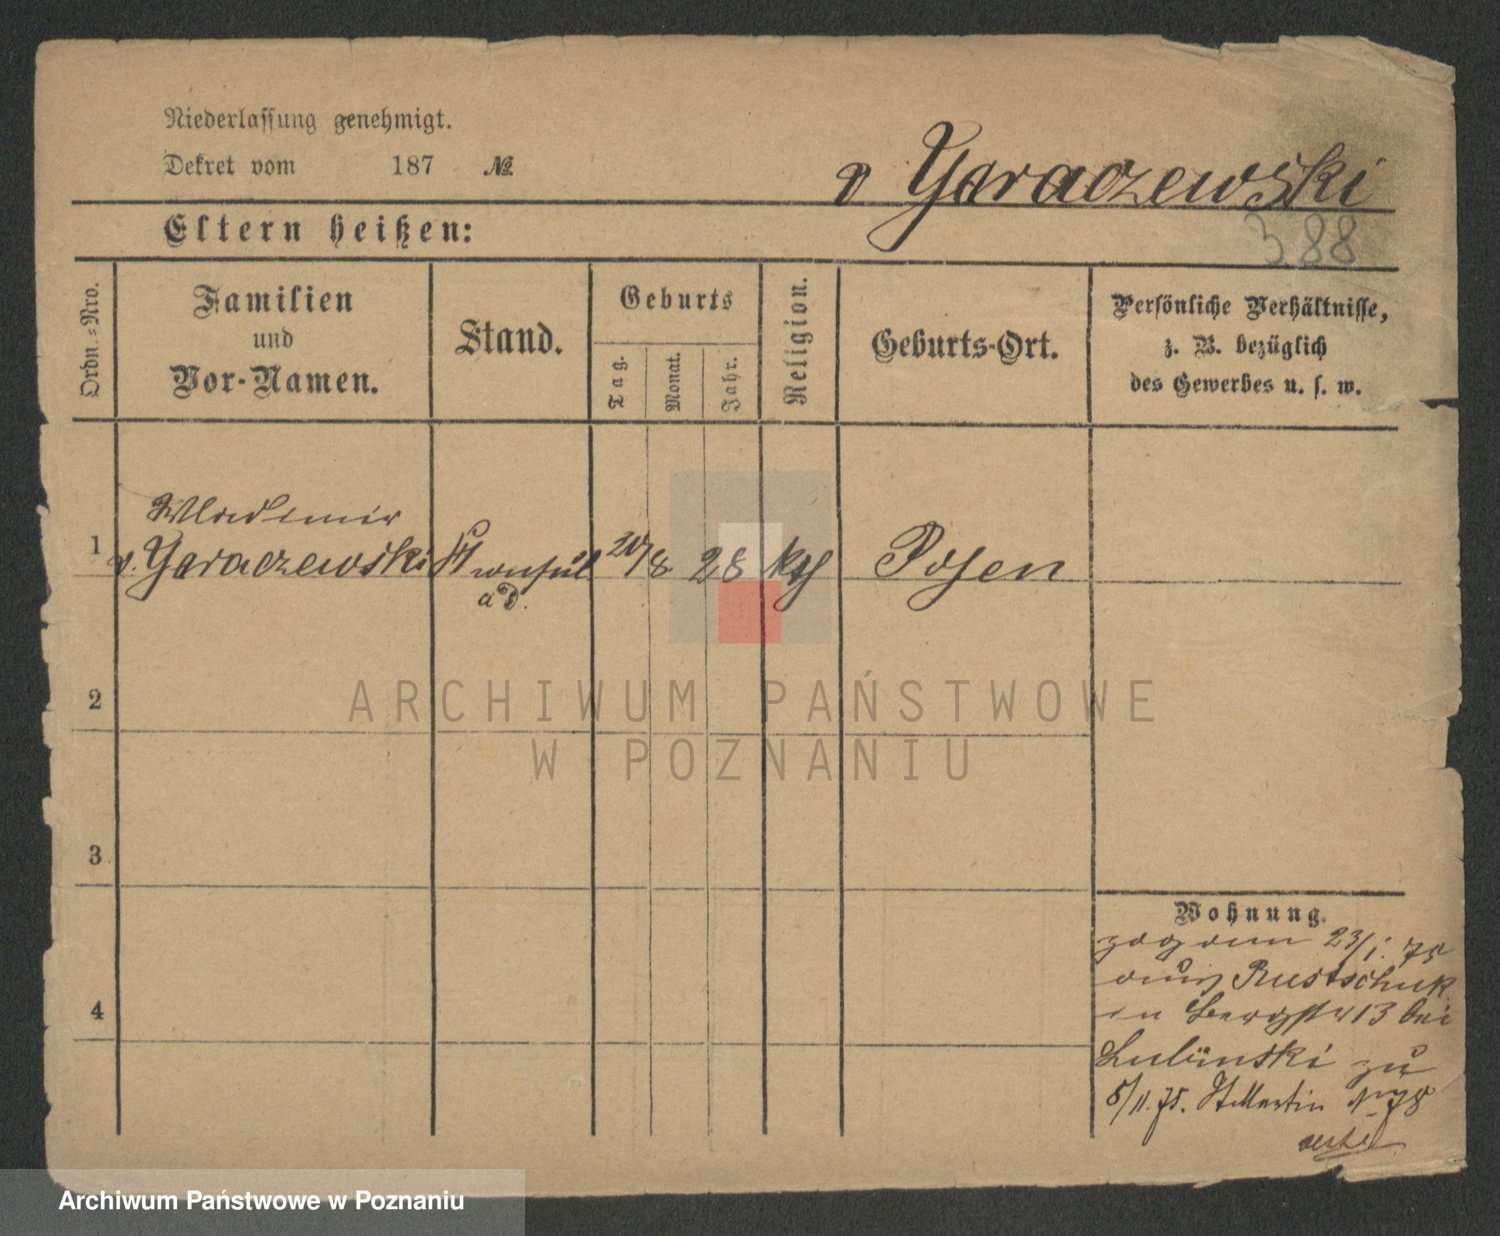 Niederlassung genehmigt.
Dekret vom 187 №
v Yaraczewski
388
Eltern heißen:
Ordn.-Nro.
Familien
und
Vor-Namen.
Stand.
Geburts
Tag.
Monat.
Jahr.
Religion.
Geburts-Ort.
Persönliche Verhältnisse,
z. B. bezüglich
des Gewerbes u. s. w.
Wladimir
1 v. Yaraczewski 20/8 28 kth Posen
a D.
2
ARCHIWUM PAŃSTWOWE
W POZNANIU
3
Wohnung.
zog am 23/1. 75
aus Rustschuk
in Bergstr 13 bei
4
Lubinski zu
5/11. 75. St Martin Nr 78
Archiwum Państwowe w Poznaniu